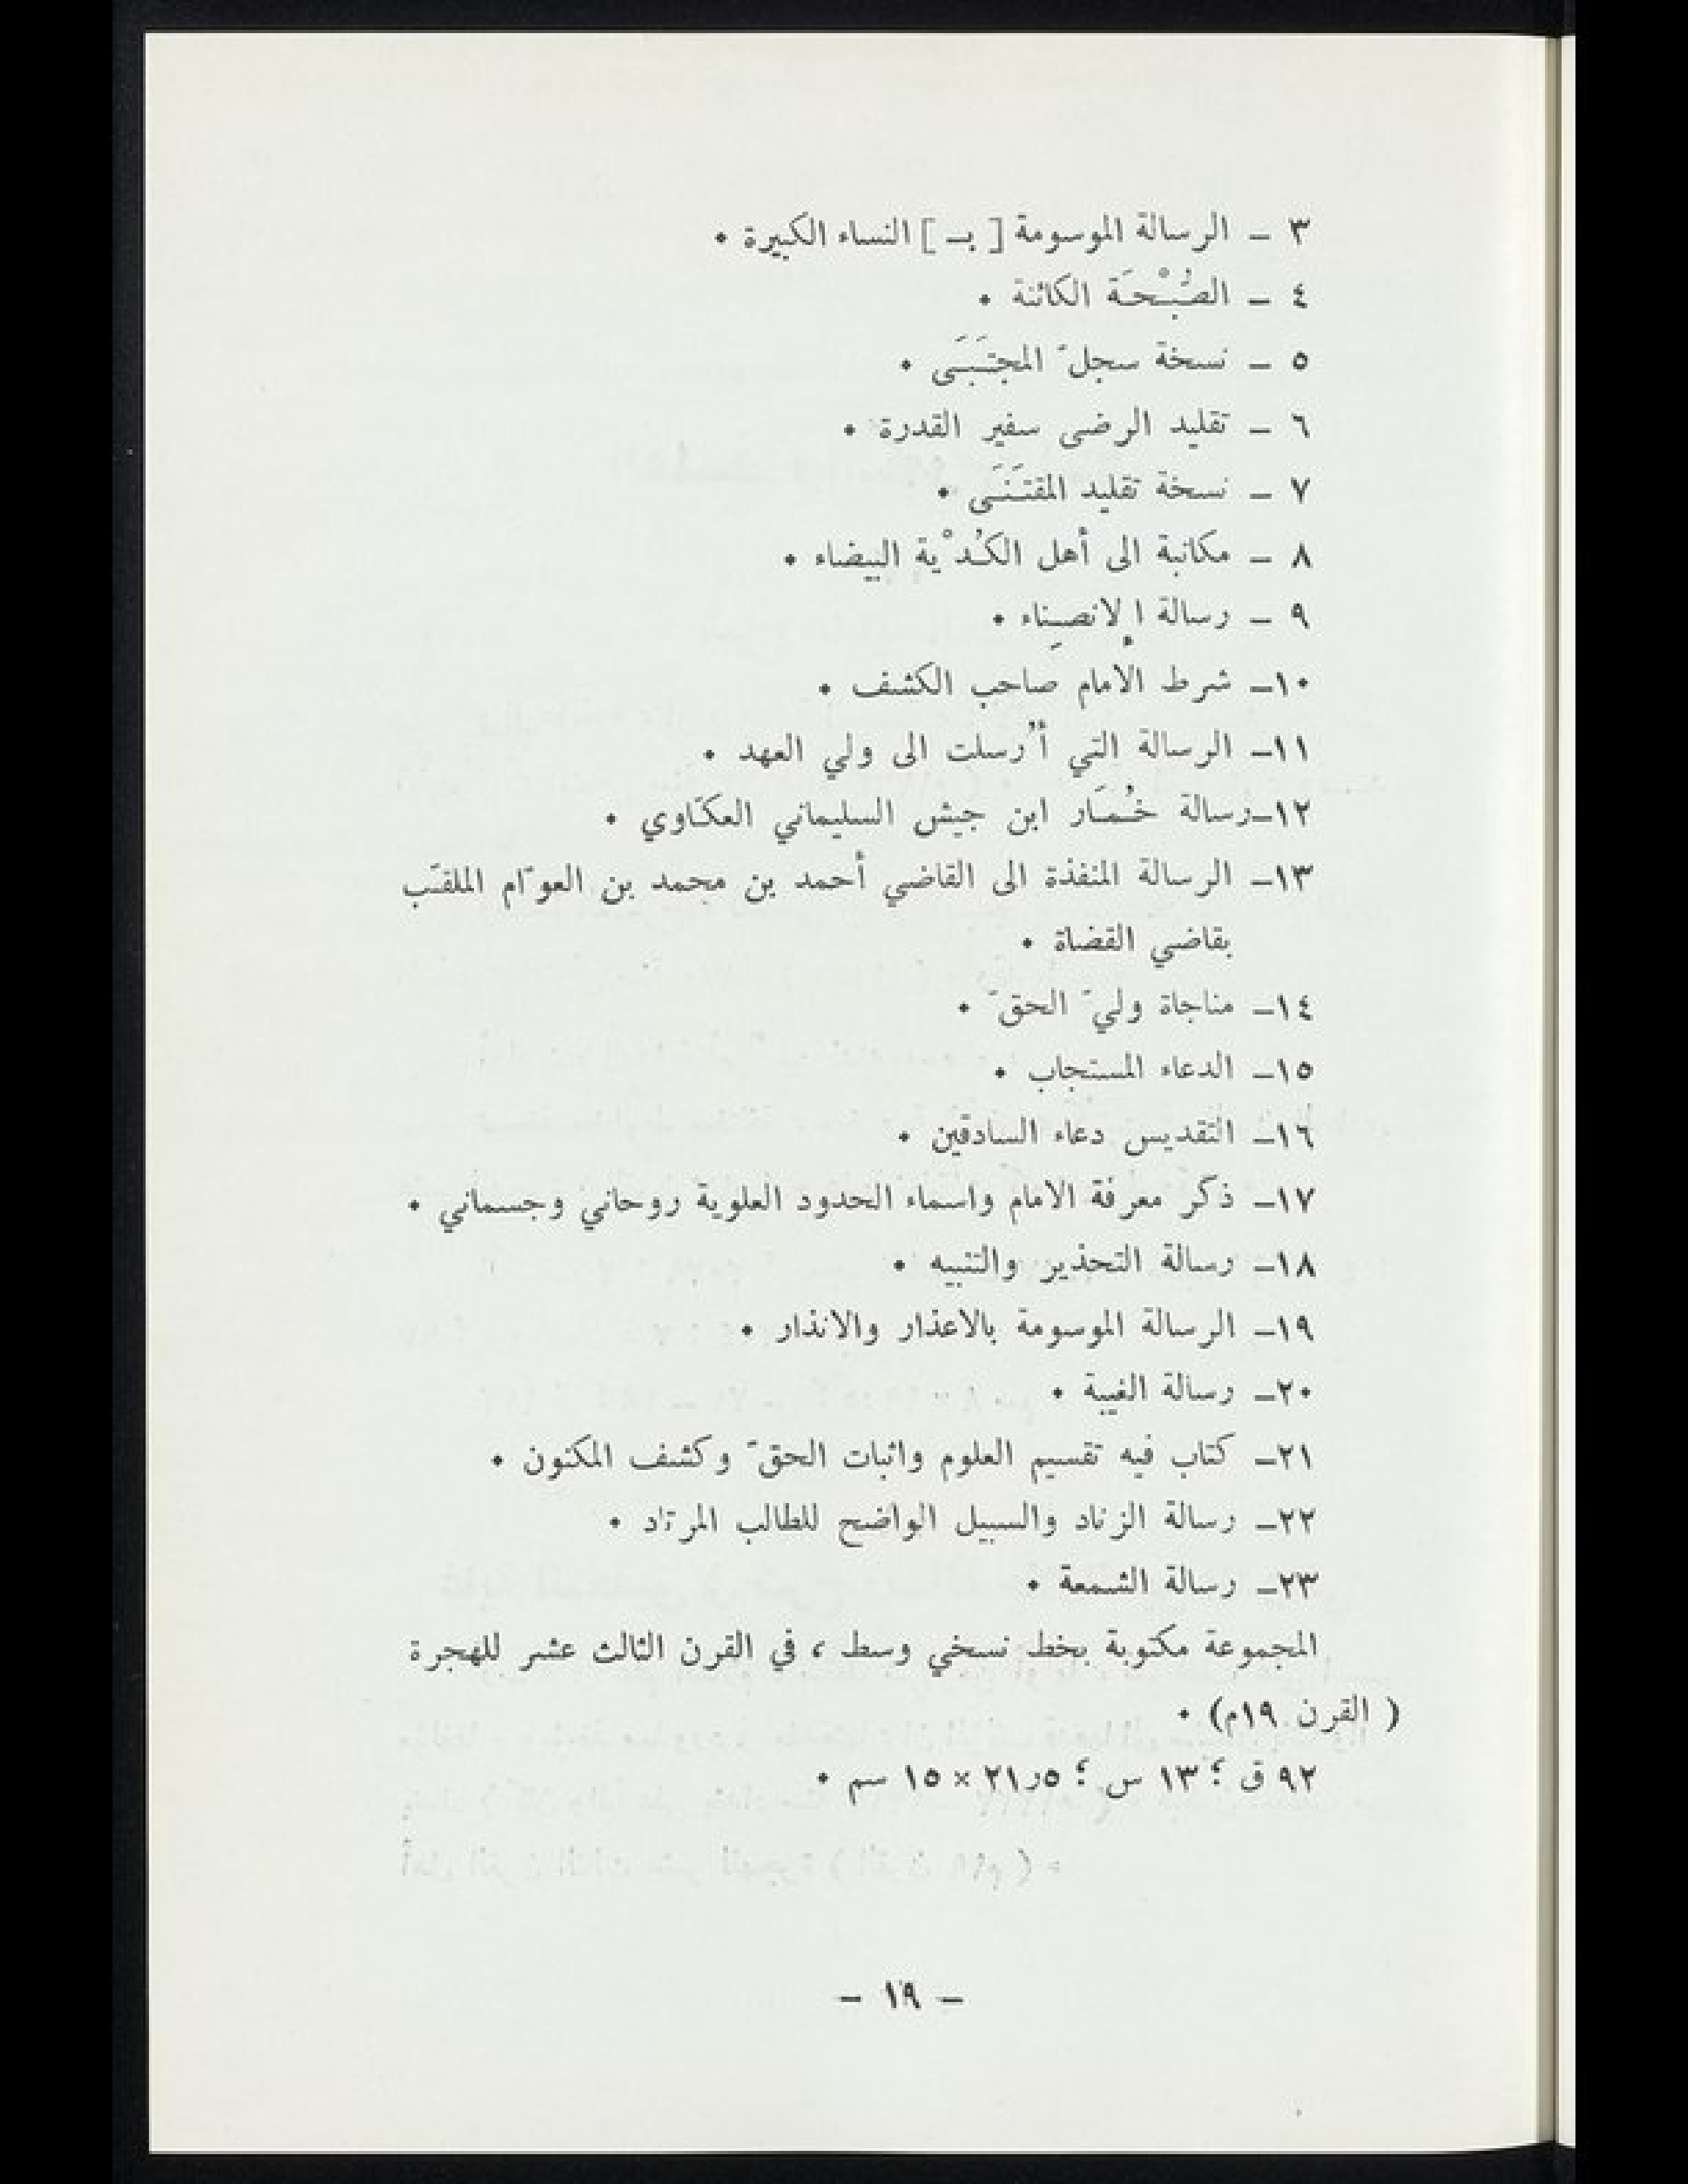 ٣ – الرسالة الموسومة [ بـ ] النساء الكبيرة .
٤ – الصُّبْحَة الكائنة .
٥ – نسخة سجلّ المجتَبَى .
٦ – تقليد الرضى سفير القدرة .
٧ – نسخة تقليد المقتَنَى .
٨ – مكاتبة الى أهل الكُدْية البيضاء .
٩ – رسالة الإنصِناء .
١٠– شرط الامام صاحب الكشف .
١١– الرسالة التي أُرسلت الى ولي العهد .
١٢–رسالة خُمَار ابن جيش السليماني العكّاوي .
١٣– الرسالة المنفذة الى القاضي أحمد بن محمد بن العوّام الملقّب
بقاضي القضاة .
١٤– مناجاة وليّ الحقّ .
١٥– الدعاء المستجاب .
١٦– التقديس دعاء السادقين .
١٧– ذكر معرفة الامام واسماء الحدود العلوية روحاني وجسماني .
١٨– رسالة التحذير والتنبيه .
١٩– الرسالة الموسومة بالاعذار والانذار .
٢٠– رسالة الغيبة .
٢١– كتاب فيه تقسيم العلوم واثبات الحقّ وكشف المكنون .
٢٢– رسالة الزناد والسبيل الواضح للطالب المرتاد .
٢٣– رسالة الشمعة .
المجموعة مكتوبة بخط نسخي وسط ، في القرن الثالث عشر للهجرة
( القرن ١٩م) .
٩٢ ق ؛ ١٣ س ؛ ٢١٫٥ × ١٥ سم .
– ١٩ –